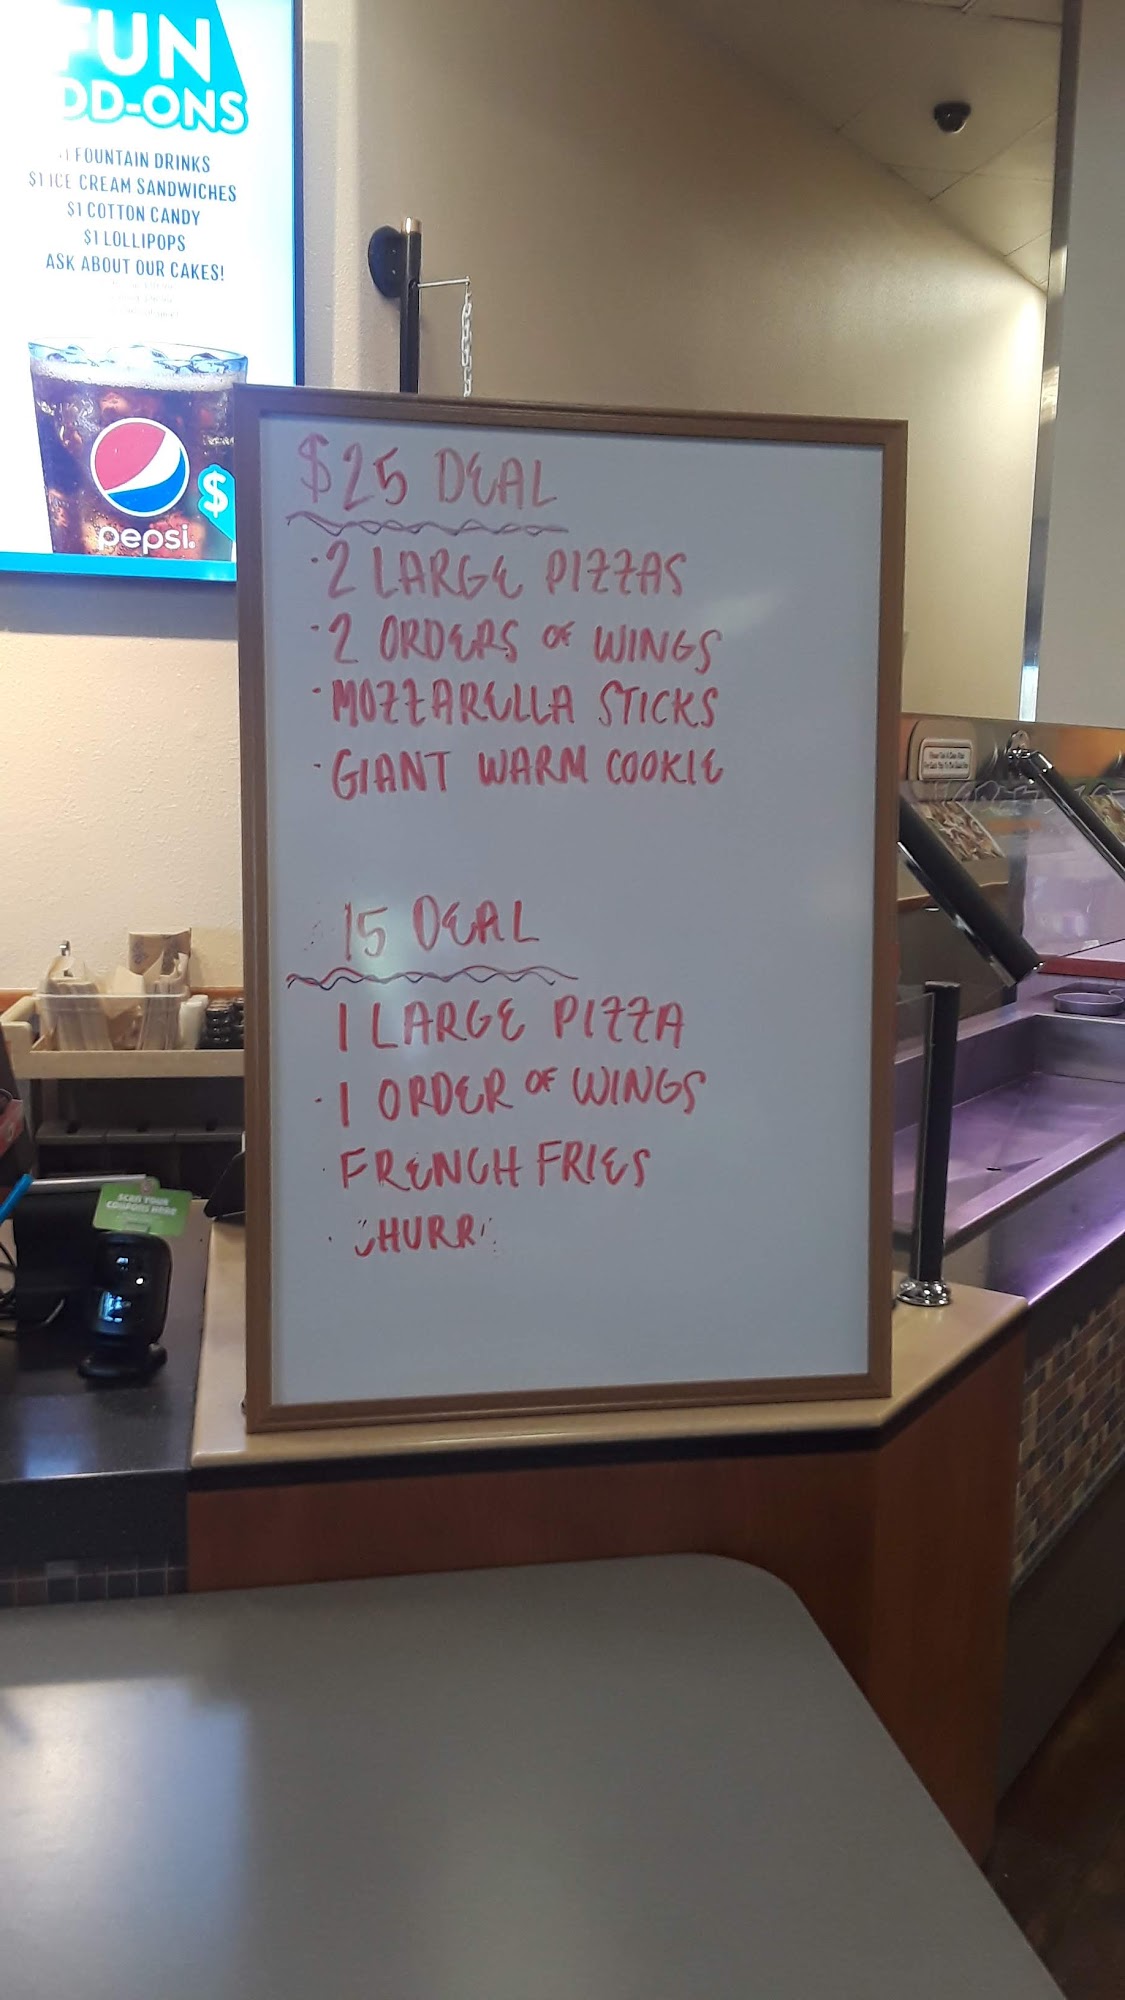 FUN
DD-ONS
$1 FOUNTAIN DRINKS
$1 ICE CREAM SANDWICHES
$1 COTTON CANDY
$1 LOLLIPOPS
ASK ABOUT OUR CAKES!
pepsi.
$
$25 DEAL
· 2 LARGE PIZZAS
· 2 ORDERS OF WINGS
· MOZZARELLA STICKS
· GIANT WARM COOKIE
15 DEAL
1 LARGE PIZZA
· 1 ORDER OF WINGS
· FRENCH FRIES
· CHURR
SCAN YOUR
COUPONS HERE